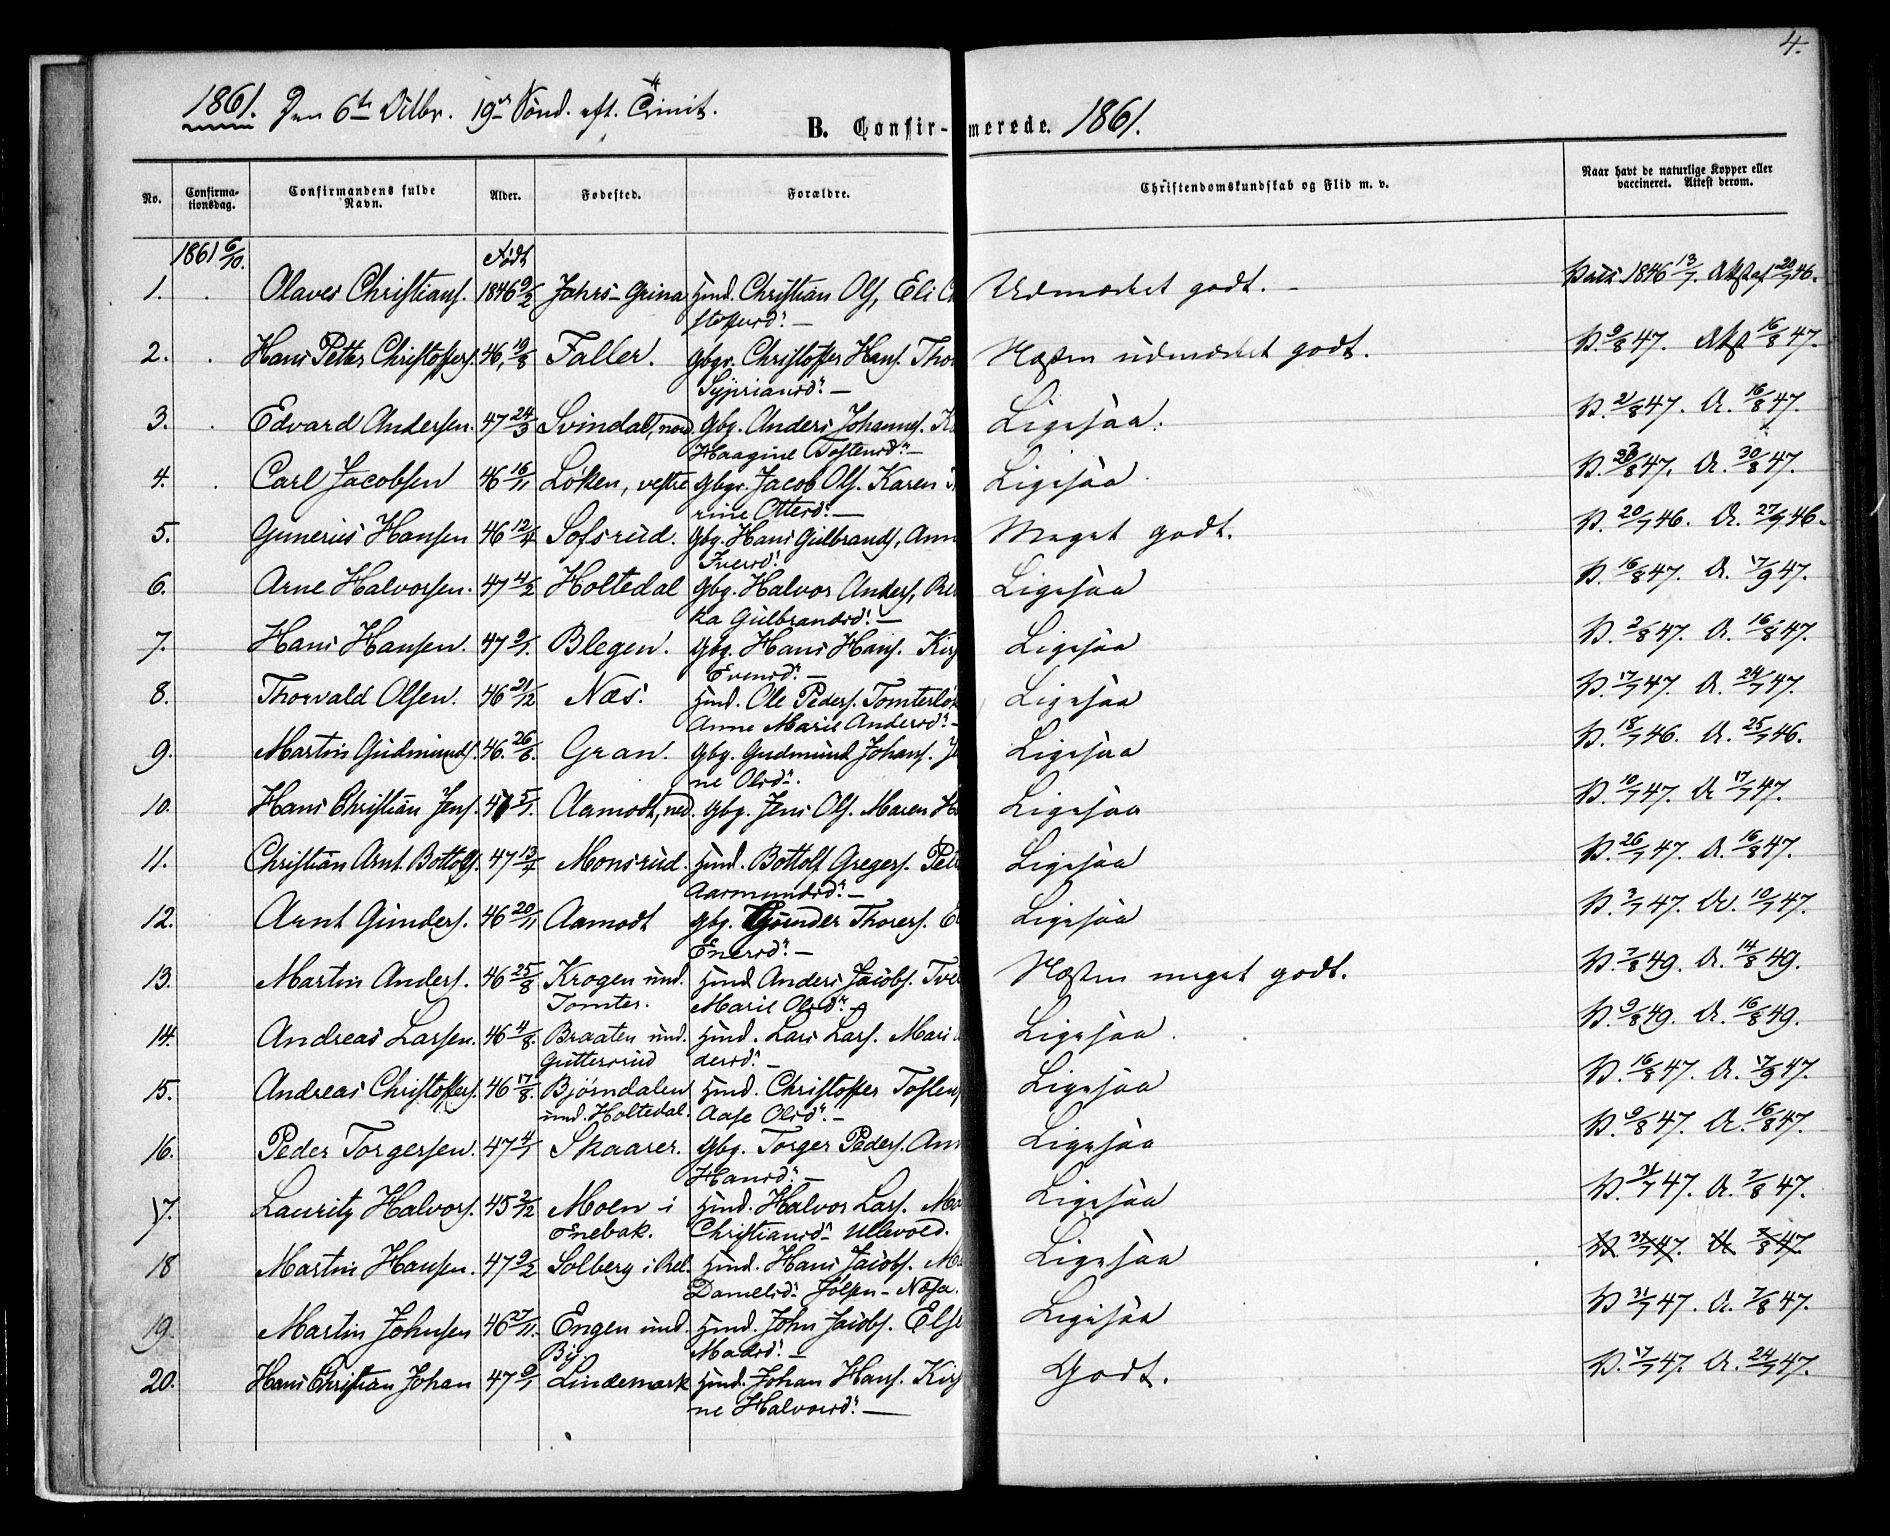 4.
1861. Den 6te Octbr. 19de Sönd. eft. Trinit.
B. Confirmerede. 1861.
No. Confirmationsdag. Confirmandens fulde Navn. Alder. Fødested. Forældre. Christendomskundskab og Flid m. v. Naar havt de naturlige Kopper eller vaccineret. Attest derom.
1861 6/10. Født
1. Olaves Christians. 1846 9/2 Jahrs-Grina Huusd. Christian Ols, Eli Ch Udmærket godt. 1846 13/7 Attst af 20/7 46.
stoffersd: —
2. Hans Petter Christoffers. 46, 19/8 Faller. Gbgr. Christoffer Hans. Thor Næsten udmærket godt. V. 9/8 47. Attst 16/8 47.
Syprian d: —
3. Edvard Andersen. 47 24/3 Svindal, nord. Gbg. Anders Johannes. K Ligesaa. V. 2/8 47. A. 16/8 47.
Haagine Tostensd: —
4. Carl Jacobsen 46 16/11 Løken, vestre Gbgr. Jacob Ols. Karen Ligesaa V. 23/8 47. A. 30/8 47.
rine Ottersd: —
5. Gunerius Hansen 46 12/4 Sofsrud. Gbg. Hans Gulbrands, Ann Meget godt. V. 20/7 46. A. 27/7 46.
Iversd:
6. Arne Halvorsen. 47 4/2 Holtedal Gbg. Halvor Anders, Re Ligesaa V. 16/8 47. A. 17/9 47.
ka Gulbrandsd: —
7. Hans Hansen. 47 9/1. Blegen. Gbg. Hans Hans. Kirs Ligesaa V. 2/8 47. A. 16/8 47.
Evensd: —
8. Thorvald Olsen. 46 21/12 Næs. Huusd. Ole Peders. Tomterløk Ligesaa V. 17/7 47. A. 24/7 47.
Anne Marie Andersd: —
9. Martin Gudmunds. 46. 26/6. Gran. Gbg. Gudmund Johans. J Ligesaa V. 18/7 46. A. 25/7 46.
ne Olsd:
10. Hans Christian Jens. 47 5/1. Aamodt, ned. Gbg. Jens Ols. Maren H Ligesaa V. 10/7 47. A 17/7 47.
11. Christian Arnt Bottolfs. 47 13/4 Monsrud. Huusd. Bottolf Gregers. Pet Ligesaa V. 26/7 47. A. 16/8 47.
Aamundsd: —
12. Arnt Gunders. 46 20/11 Aamodt Gbg. Gunder Thorers. E Ligesaa V. 3/7 47. A. 10/7 47.
Enersd: —
13. Martin Anders. 46 25/8 Krogen und. Huusd Anders Jacobs. Tve Næsten meget godt. V. 7/8 49. A. 14/8 49.
Tomter. Marie Olsd:
14. Andreas Larsen. 46 4/8. Braaten und. Huusd. Lars Lars. Mari Ligesaa. V. 9/8 49. A. 16/8 49.
Guttersrud dersd: —
15. Andreas Christoffers. 46 17/8. Bjørndalen Huusd. Christoffer Tosten, Ligesaa V. 16/8 47. A. 17/9 47.
und. Holtedal. Aase Olsd: —
16. Peder Torgersen. 47 4/1 Skaarer. Gbg. Torger Peders. Ann Ligesaa V. 9/8 47. A. 16/8 47.
Hansd: —
17. Lauritz Halvors. 45 2/12 Moen i Huusd. Halvor Lars. Ma Ligesaa V. 31/7 47. A. 7/8 47.
Enebak. Christiansd: Ullevold.
18 Martin Hansen. 47 9/2 Solberg i Rel. Huusd. Hans Jacobs. M Ligesaa V. 31/7 47. A 7/8 47.
Danielsd: Jölsen-Næsa.
19. Martin Johnsen 46 27/11. Engen und. Huusd. John Jacobs. Else Ligesaa V 31/7 47. A. 7/8 47.
By. Madsd: —
20. Hans Christian Johan 47 9/1 Lindemark Huusd. Johan Hans. Kirs Godt. V. 17/7 47. A. 24/7 47.
ne Halvorsd: —